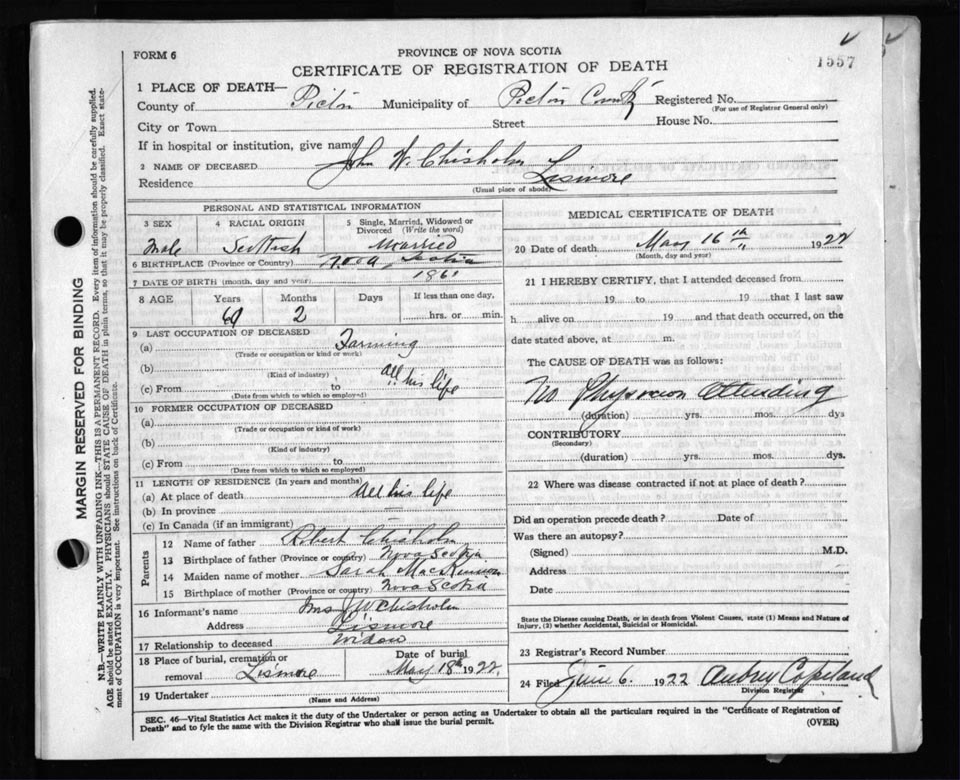 FORM 6
PROVINCE OF NOVA SCOTIA
1557
CERTIFICATE OF REGISTRATION OF DEATH
1 PLACE OF DEATH—
County of Pictou Municipality of Pictou County Registered No.
(For use of Registrar General only)
City or Town Street House No.
If in hospital or institution, give name
2 NAME OF DECEASED John W. Chisholm
Residence Lismore
(Usual place of abode)
PERSONAL AND STATISTICAL INFORMATION
3 SEX 4 RACIAL ORIGIN 5 Single, Married, Widowed or Divorced (Write the word)
Male Scottish Married
6 BIRTHPLACE (Province or Country) Nova Scotia
7 DATE OF BIRTH (month, day and year) 1861
8 AGE Years Months Days If less than one day,
2 hrs. or min.
9 LAST OCCUPATION OF DECEASED
(a) Farming
(Trade or occupation or kind of work)
(b)
(Kind of industry)
(c) From to All his life
(Date from which to which so employed)
10 FORMER OCCUPATION OF DECEASED
(a)
(Trade or occupation or kind of work)
(b)
(Kind of industry)
(c) From to
(Date from which to which so employed)
11 LENGTH OF RESIDENCE (In years and months)
(a) At place of death All his life
(b) In province —
(c) In Canada (if an immigrant)
Parents
12 Name of father Robert Chisholm
13 Birthplace of father (Province or country) Nova Scotia
14 Maiden name of mother Sarah MacKinnon
15 Birthplace of mother (Province or country) Nova Scotia
16 Informant's name Mrs J W Chisholm
Address Lismore
17 Relationship to deceased Widow
18 Place of burial, cremation or removal Lismore
Date of burial May 18th 1922.
19 Undertaker
(Name and Address)
MEDICAL CERTIFICATE OF DEATH
20 Date of death May 16th 1922
(Month, day and year)
21 I HEREBY CERTIFY, that I attended deceased from
19 to 19 that I last saw
h alive on 19 and that death occurred, on the
date stated above, at m.
The CAUSE OF DEATH was as follows:
No Physician Attending
(duration) yrs. mos. dys
CONTRIBUTORY
(Secondary)
(duration) yrs. mos. dys.
22 Where was disease contracted if not at place of death?
Did an operation precede death? Date of
Was there an autopsy?
(Signed) M.D.
Address
Date
State the Disease causing Death, or in death from Violent Causes, state (1) Means and Nature of
Injury, (2) whether Accidental, Suicidal or Homicidal.
23 Registrar's Record Number
24 Filed June 6. 1922 Aubrey Copeland
Division Registrar
SEC. 46—Vital Statistics Act makes it the duty of the Undertaker or person acting as Undertaker to obtain all the particulars required in the "Certificate of Registration of
Death" and to fyle the same with the Division Registrar who shall issue the burial permit.
(OVER)
MARGIN RESERVED FOR BINDING
N.B.—WRITE PLAINLY WITH UNFADING INK—THIS IS A PERMANENT RECORD. Every item of information should be carefully supplied.
AGE should be stated EXACTLY. PHYSICIANS should STATE CAUSE OF DEATH in plain terms, so that it may be properly classified. Exact state-
ment of OCCUPATION is very important. See instructions on back of Certificate.